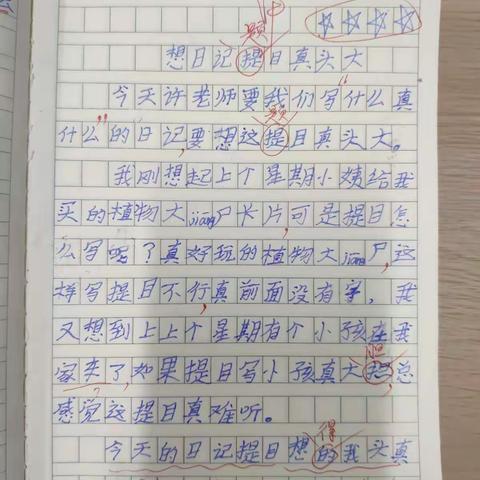 题
想日记提目真头大
今天许老师要我们写“什么真
题
什么”的日记,要想这提目真头大。
我刚想起上个星期小姨给我
买的植物大jiang尸卡片,可是提目怎
么写呢?真好玩的植物大jiang尸,这
样写提目不行,真前面没有字,我
又想到上上个星期有个小孩在我
胆
家来了,如果提目写小孩真大,总
感觉这提目真难听。
得
今天的日记提目想的我头真